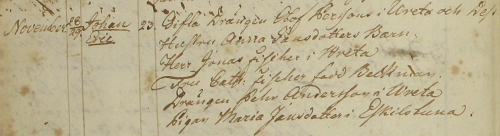 Novembr. 26 Johan 23. Gifta Drängen Olof Persons i Wreta och dess
29 Eric Hustru Anna Jansdotters Barn.
Herr Jonas Fischer i Wreta
Fru Cath. Fischer född Beckman.
Drängen Pehr Andersson i Wreta
Pigan Maria Jansdotter i Eskilstuna.